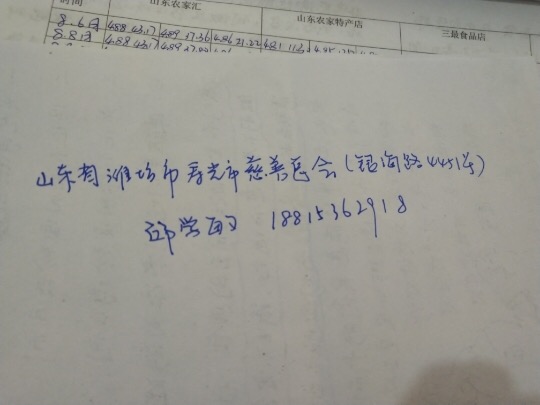 时间 山东农家汇 山东农家特产店 三最食品店
8.6日 488 43.17 489 27.36 486 21.22 481 113
8.8日 488 43.17 489
山东省潍坊市寿光市慈善总会(银海路4451号)
邱学 18815362918